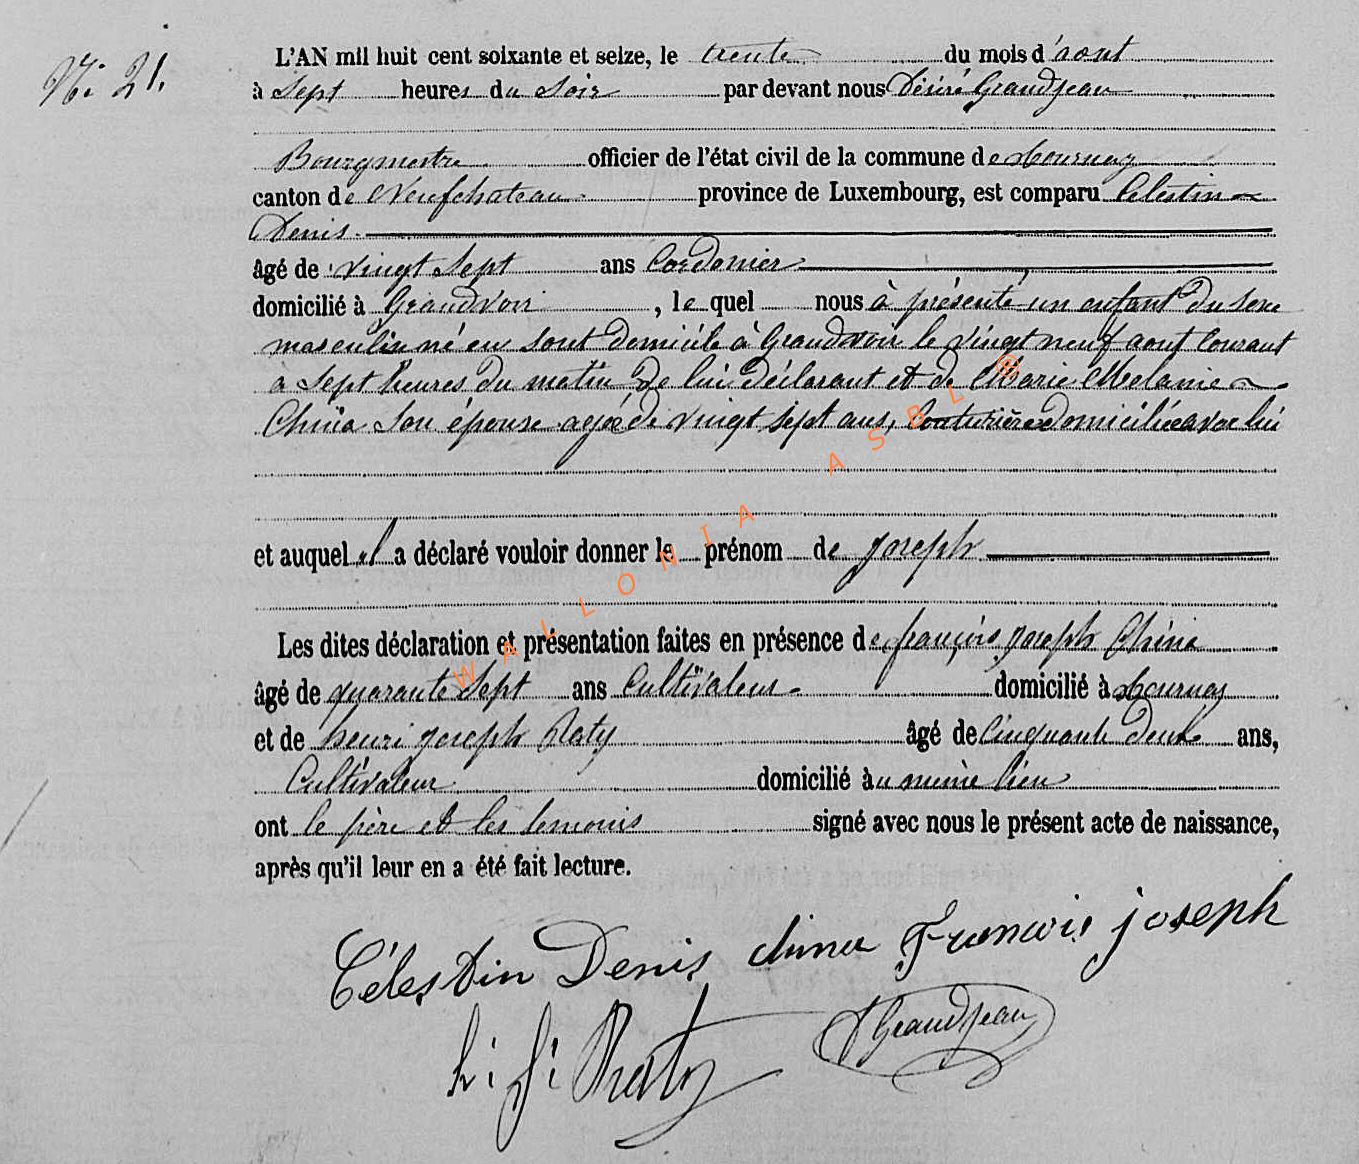 N.° 21.
L'AN mil huit cent soixante et seize, le trente du mois d'aout
à Sept heures du Soir par devant nous Désiré Grandjean
Bourgmestre officier de l'état civil de la commune de Tournay
canton de Neufchateau province de Luxembourg, est comparu Celestin
Denis
âgé de vingt Sept ans Cordonier
domicilié à Grandvoir, le quel nous à présenté un enfant du sexe
masculin né en sont domicile à Grandvoir le vingt neuf aout Courant
à Sept heures du matin de lui déclarant et de Marie Melanie
China Son épouse agée de vingt sept ans, Couturière domiciliée avec lui
et auquel il a déclaré vouloir donner le prénom de joseph
Les dites déclaration et présentation faites en présence de françois joseph China
âgé de quarante Sept ans Cultivateur domicilié à Tournay
et de henri joseph Raty âgé de Cinquante deux ans,
Cultivateur domicilié au même lieu
ont le père et les temoins signé avec nous le présent acte de naissance,
après qu'il leur en a été fait lecture.
Célestin Denis china Francois joseph
h: j: Raty DGrandjean
WALLONIA ASBL ®